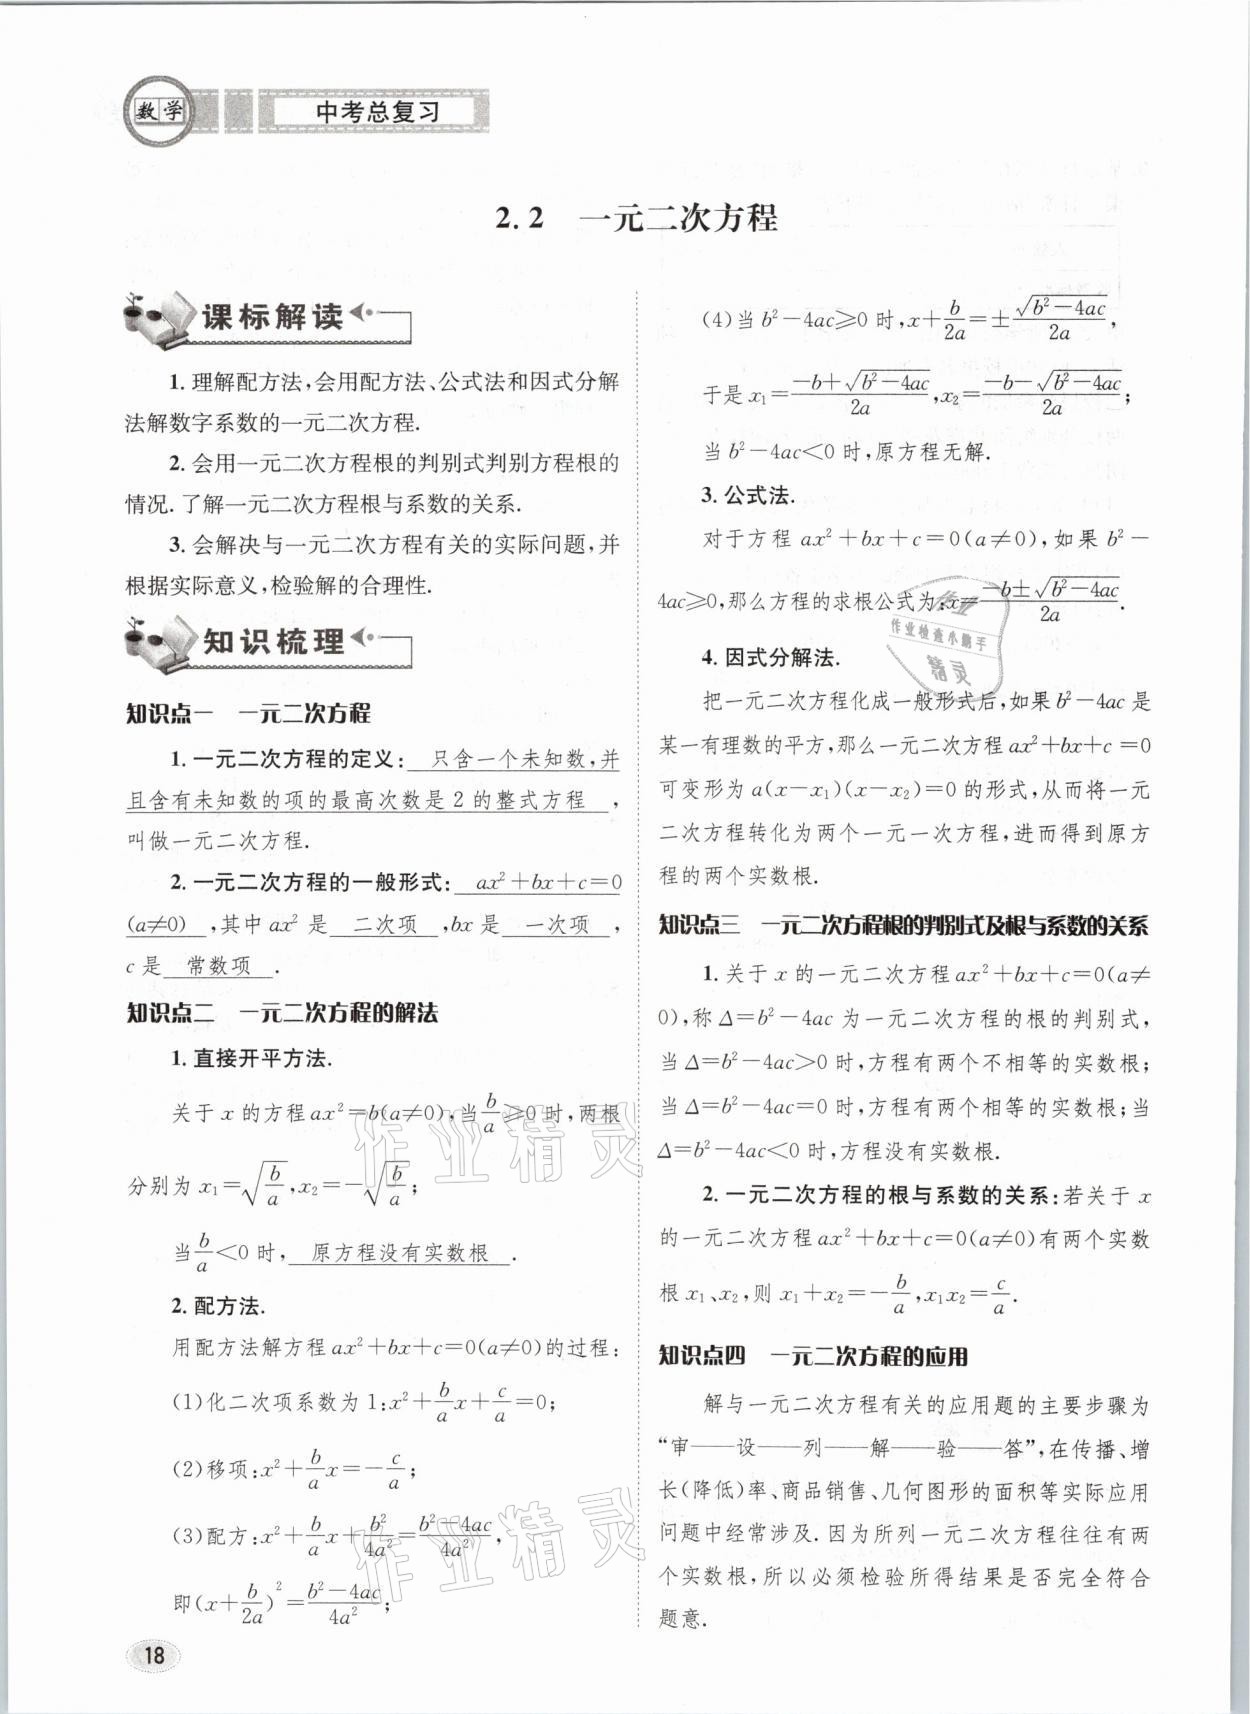 数学
中考总复习
2.2 一元二次方程
课标解读
1. 理解配方法,会用配方法、公式法和因式分解
法解数字系数的一元二次方程.
2. 会用一元二次方程根的判别式判别方程根的
情况. 了解一元二次方程根与系数的关系.
3. 会解决与一元二次方程有关的实际问题,并
根据实际意义,检验解的合理性.
知识梳理
知识点一 一元二次方程
1. 一元二次方程的定义: 只含一个未知数,并
且含有未知数的项的最高次数是 2 的整式方程 ,
叫做一元二次方程.
2. 一元二次方程的一般形式: ax²+bx+c=0
(a≠0) ,其中 ax² 是 二次项 ,bx 是 一次项 ,
c 是 常数项 .
知识点二 一元二次方程的解法
1. 直接开平方法.
关于 x 的方程 ax²=b(a≠0),当 b/a ≥0 时,两根
分别为 x₁=√(b/a),x₂=-√(b/a);
当 b/a <0 时, 原方程没有实数根 .
2. 配方法.
用配方法解方程 ax²+bx+c=0(a≠0)的过程:
(1)化二次项系数为 1:x²+(b/a)x+c/a=0;
(2)移项:x²+(b/a)x=-c/a;
(3)配方:x²+(b/a)x+b²/4a²=(b²-4ac)/4a²,
即(x+b/2a)²=(b²-4ac)/4a²;
(4)当 b²-4ac≥0 时,x+b/2a=±√(b²-4ac)/2a,
于是 x₁=(-b+√(b²-4ac))/2a,x₂=(-b-√(b²-4ac))/2a;
当 b²-4ac<0 时,原方程无解.
3. 公式法.
对于方程 ax²+bx+c=0(a≠0),如果 b²-
4ac≥0,那么方程的求根公式为:x=(-b±√(b²-4ac))/2a.
4. 因式分解法.
把一元二次方程化成一般形式后,如果 b²-4ac 是
某一有理数的平方,那么一元二次方程 ax²+bx+c=0
可变形为 a(x-x₁)(x-x₂)=0 的形式,从而将一元
二次方程转化为两个一元一次方程,进而得到原方
程的两个实数根.
知识点三 一元二次方程根的判别式及根与系数的关系
1. 关于 x 的一元二次方程 ax²+bx+c=0(a≠
0),称 Δ=b²-4ac 为一元二次方程的根的判别式,
当 Δ=b²-4ac>0 时,方程有两个不相等的实数根;
当 Δ=b²-4ac=0 时,方程有两个相等的实数根;当
Δ=b²-4ac<0 时,方程没有实数根.
2. 一元二次方程的根与系数的关系:若关于 x
的一元二次方程 ax²+bx+c=0(a≠0)有两个实数
根 x₁、x₂,则 x₁+x₂=-b/a,x₁x₂=c/a.
知识点四 一元二次方程的应用
解与一元二次方程有关的应用题的主要步骤为
“审——设——列——解——验——答”,在传播、增
长(降低)率、商品销售、几何图形的面积等实际应用
问题中经常涉及. 因为所列一元二次方程往往有两
个实数根,所以必须检验所得结果是否完全符合
题意.
18
作业
作业检查小助手
精灵
作业精灵
作业精灵